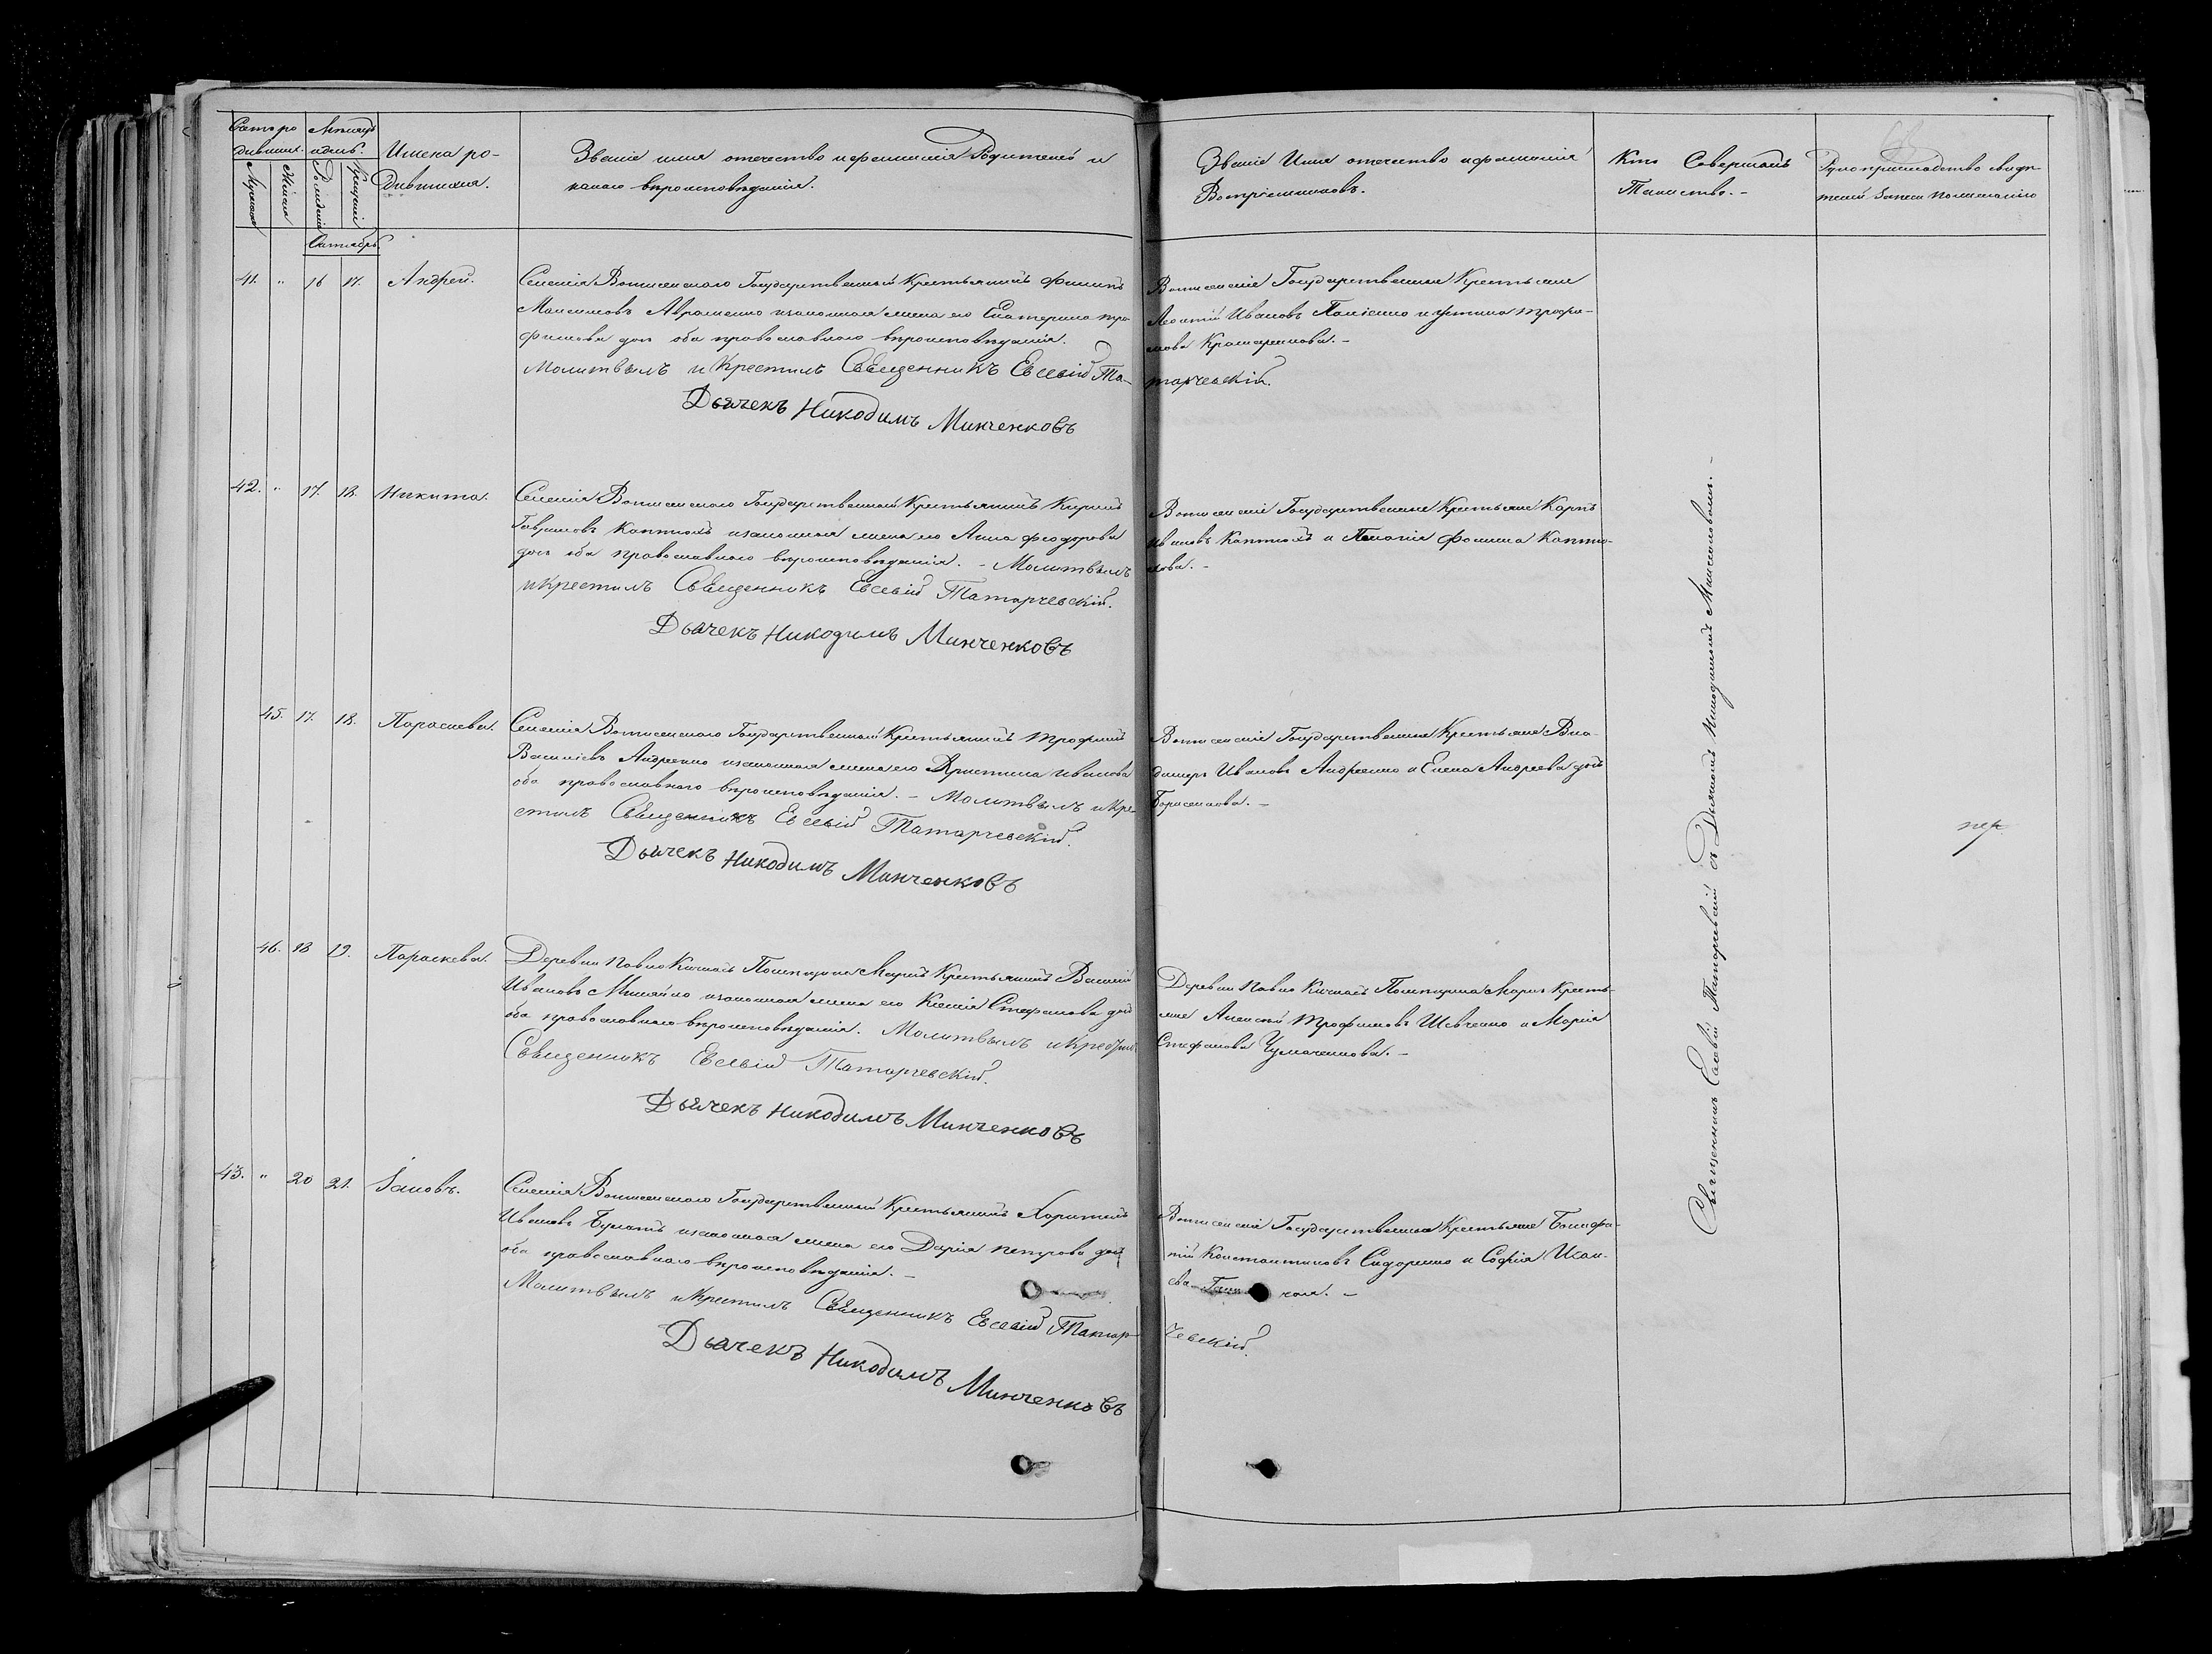 Счетъ ро
дившихъ.
Мѣсяцъ
и день.
Мужеска
Женска
Рожденія
Крещенія
Имена ро-
дившихся.
Званіе имя отечество и фамилія Родителей и
какого вѣроисповѣданія.
Званіе Имя отечество и фамилія
Воспріемниковъ.
Кто Совершалъ
Таинство.-
Рукоприкладство свидѣ-
телей записи по желанію
Октябрь.
41. " 16 17. Андрей.
Селенія Вотилевского Государственный Крестьянинъ Филипъ
Максимовъ Авраменко и законная жена его Екатерина Тро-
фимова дочь оба православного вѣроисповѣданія.
Молитвилъ и Крестилъ Свѣщенникъ Евсевій Та-
тарчевскій.
Дьячекъ Никодимъ Минченковъ
Вотилевскіе Государственные Крестьяне
Леонтій Ивановъ и Устина Трофи-
мова
42. " 17. 18. Никита.
Селенія Вотилевского Государственный Крестьянинъ Кирилъ
Гавриловъ Каптюхъ и законная жена его Анна Феодорова
дочь оба православного вѣроисповѣданія. - Молитвилъ
и крестилъ Свѣщенникъ Евсевій Татарчевскій.
Дьячекъ Никодимъ Минченковъ
Вотилевскіе Государственные Крестьяне Карпъ
Ивановъ Каптюхъ и Пелагія Фомина Каптю-
хова.-
45. 17. 18. Параскева.
Селенія Вотилевского Государственный Крестьянинъ Трофимъ
Василіевъ Андреенко и законная жена его Христина Иванова
оба православного вѣроисповѣданія. - Молитвилъ и Кре-
стилъ Свѣщенникъ Евсевій Татарчевскій.
Дьячекъ Никодимъ Минченковъ
Вотилевскіе Государственные Крестьяне Вла-
димиръ Ивановъ Андреенко и Елена Андреева дочь
Борисенкова.-
46. 18 19. Параскева.
Деревни Павло Помѣщика Крестьянинъ Василій
Ивановъ Михайло и законная жена его Ксенія Стефанова дочь
оба православного вѣроисповѣданія. Молитвилъ и Крестилъ
Свѣщенникъ Евсевій Татарчевскій.
Дьячекъ Никодимъ Минченковъ
Деревни Павло Помѣщика Кресть-
яне Алексѣй Трофимовъ Шевченко и Марія
Стефанова Чумаченкова.-
43. " 20 21. Іаковъ.
Селенія Вотилевского Государственный Крестьянинъ Харитонъ
Ивановъ Булатъ и законная жена его Дарія Петрова дочь
оба православного вѣроисповѣданія.-
Молитвилъ и Крестилъ Свѣщенникъ Евсевій Татар-
чевскій.
Дьячекъ Никодимъ Минченковъ
Вотилевскіе Государственные Крестьяне Бонифа-
тій Константиновъ Сидоренко и Софія Исаи-
ева
Свѣщенникъ Евсевій Татарчевскій съ Дьячкомъ Никодимомъ